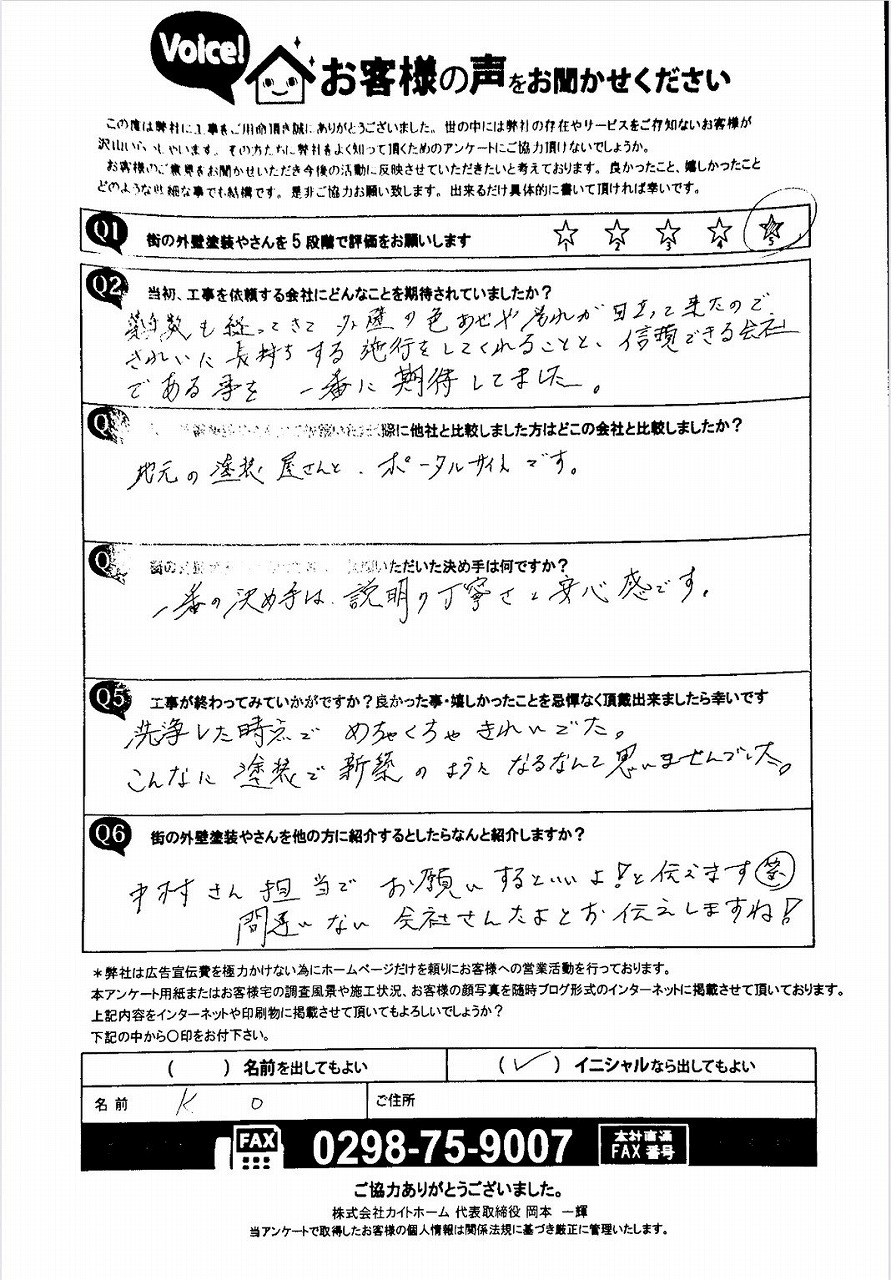 Voice!
お客様の声をお聞かせください
この度は弊社に工事をご用命頂き誠にありがとうございました。世の中には弊社の存在やサービスをご存知ないお客様が
沢山いらっしゃいます。その方たちに弊社をよく知って頂くためのアンケートにご協力頂けないでしょうか。
お客様のご意見をお聞かせいただき今後の活動に反映させていただきたいと考えております。良かったこと、嬉しかったこと
どのような些細な事でも結構です。是非ご協力お願い致します。出来るだけ具体的に書いて頂ければ幸いです。
Q1 街の外壁塗装やさんを5段階で評価をお願いします ☆1 ☆2 ☆3 ☆4 ☆5
Q2 当初、工事を依頼する会社にどんなことを期待されていましたか?
築年数も経ってきて外壁の色あせや汚れが目立って来たので、
きれいに長持ちする施行をしてくれることと、信頼できる会社
である事を一番に期待してました。
Q 際に他社と比較しました方はどこの会社と比較しましたか?
地元の塗装屋さんと、ポータルサイトです。
Q 街の いただいた決め手は何ですか?
一番の決め手は、説明の丁寧さと安心感です。
Q5 工事が終わってみていかがですか?良かった事・嬉しかったことを忌憚なく頂戴出来ましたら幸いです
洗浄した時点でめちゃくちゃきれいでした。
こんなに塗装で新築のようになるなんて思いませんでした。
Q6 街の外壁塗装やさんを他の方に紹介するとしたらなんと紹介しますか?
中村さん担当でお願いするといいよ!と伝えます(笑)
間違いない会社さんだよとお伝えしますね!
*弊社は広告宣伝費を極力かけない為にホームページだけを頼りにお客様への営業活動を行っております。
本アンケート用紙またはお客様宅の調査風景や施工状況、お客様の顔写真を随時ブログ形式のインターネットに掲載させて頂いております。
上記内容をインターネットや印刷物に掲載させて頂いてもよろしいでしょうか?
下記の中から〇印をお付下さい。
( ) 名前を出してもよい (✓) イニシャルなら出してもよい
名前 K O ご住所
FAX 0298-75-9007 本社直通 FAX番号
ご協力ありがとうございました。
株式会社カイトホーム 代表取締役 岡本 一輝
当アンケートで取得したお客様の個人情報は関係法規に基づき厳正に管理いたします。